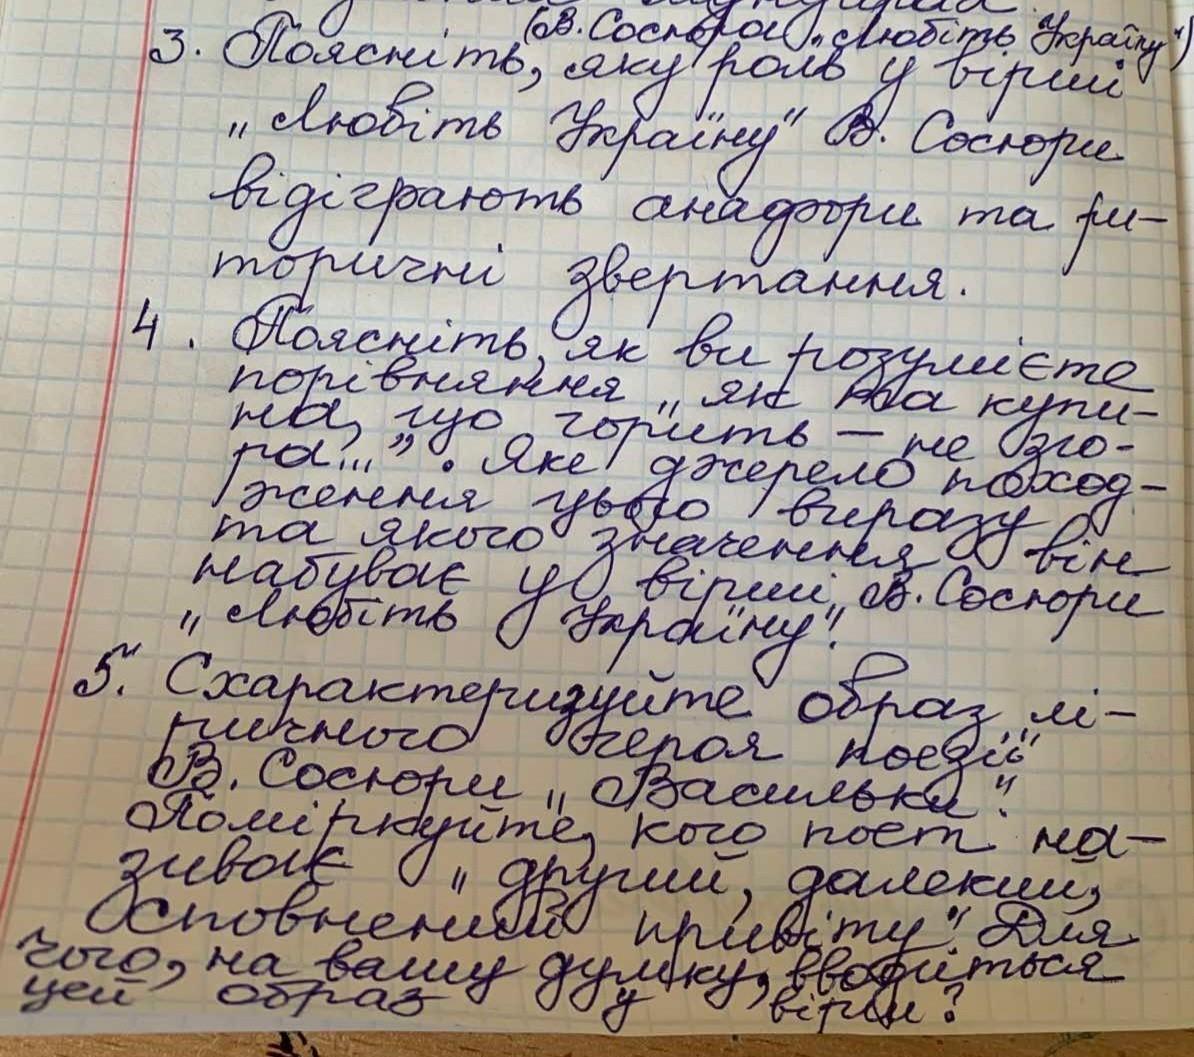 (В. Сосюра „Любіть Україну")
3. Поясніть, яку роль у вірші
„Любіть Україну" В. Сосюри
відіграють анафори та ри-
торичні звертання.
4. Поясніть, як ви розумієте
порівняння „як та купи-
на, що горить – не зго-
ра...". Яке джерело поход-
ження цього виразу
та якого значення він
набуває у вірші В. Сосюри
„Любіть Україну".
5. Схарактеризуйте образ лі-
ричного героя поезії
В. Сосюри „Васильки".
Поміркуйте, кого поет на-
зиває „другий, далекий,
сповнений привіту". Для
чого, на вашу думку, вводиться
цей образ у вірш?